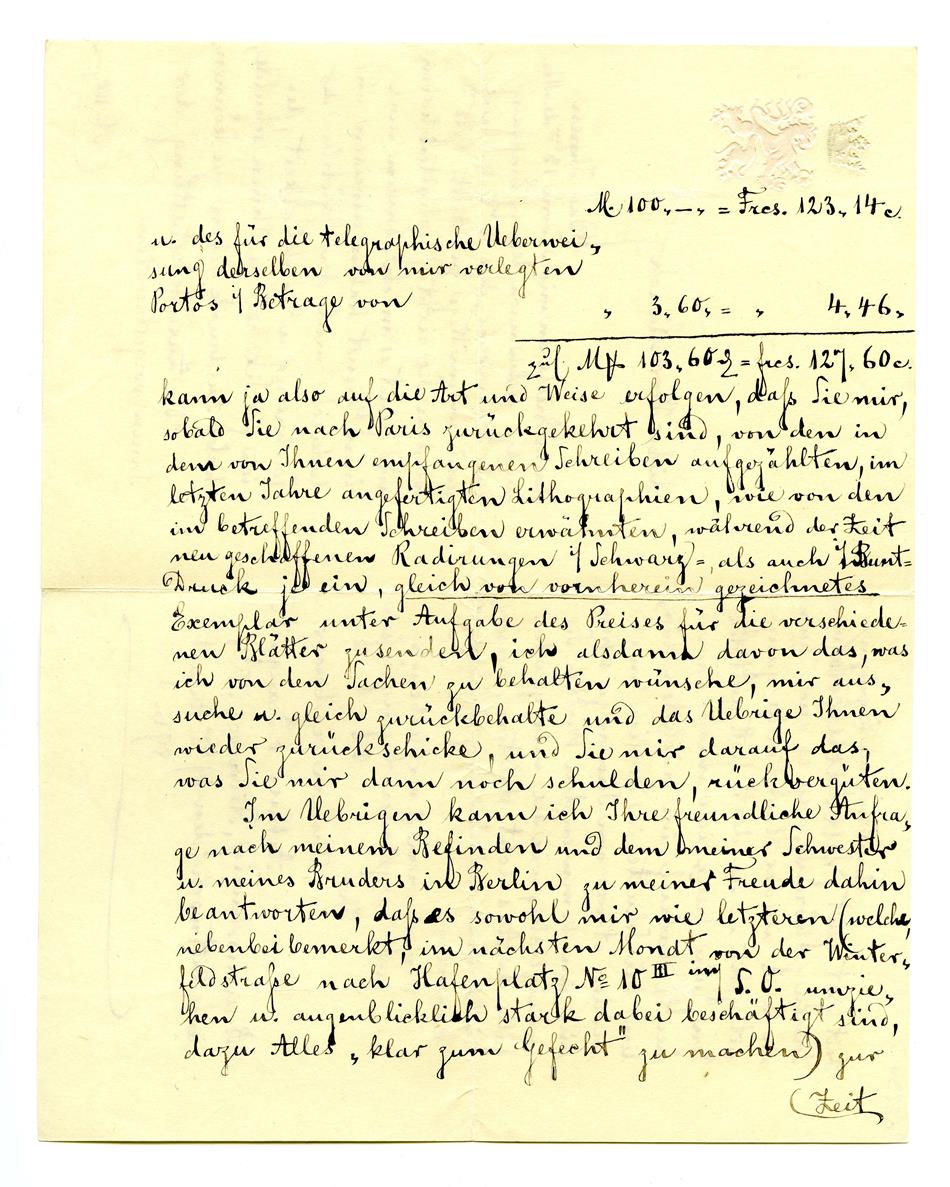 M. 100,,—,, = Frcs. 123,,14 c.
u. des für die telegraphische Ueberwei„
sung derselben von mir verlegten
Portos i/ Betrage von
„ 3,,60,, = „ 4,,46„
M 103,,60 = frcs. 127,,60 c.
kann ja also auf die Art und Weise erfolgen, daß Sie mir,
sobald Sie nach Paris zurückgekehrt sind, von den in
dem von Ihnen empfangenen Schreiben aufgezählten, im
letzten Jahre angefertigten Lithographien, wie von den
im betreffenden Schreiben erwähnten, während der Zeit
neu geschaffenen Radirungen i/ Schwarz=, als auch i/ Bunt=
Druck je ein, gleich von vornherein gezeichnetes
Exemplar unter Aufgabe des Preises für die verschiede=
nen Blätter zusenden, ich alsdann davon das, was
ich von den Sachen zu behalten wünsche, mir aus„
suche u. gleich zurückbehalte und das Uebrige Ihnen
wieder zurückschicke, und Sie mir darauf das,
was Sie mir dann noch schulden, rückvergüten.
Im Uebrigen kann ich Ihre freundliche Anfra„
ge nach meinem Befinden und dem meiner Schwester
u. meines Bruders in Berlin zu meiner Freude dahin
beantworten, daß es sowohl mir wie letzteren (welche,
nebenbei bemerkt, im nächsten Monat von der Winter„
feldstraße nach Hafenplatz No 10 III im S. O. umzie„
hen u. augenblicklich stark dabei beschäftigt sind,
dazu Alles „klar zum Gefecht" zu machen) zur
(Zeit